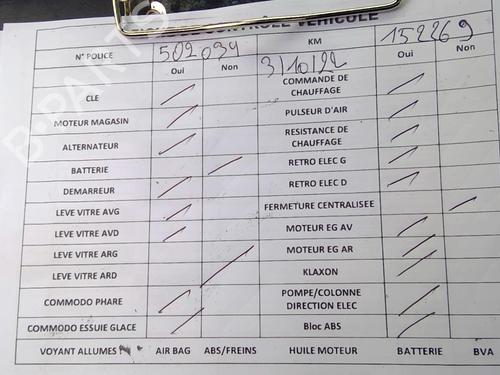 CONTRÔLE VÉHICULE
N° POLICE 502 034 KM 152269
Oui Non 3/10/22 Oui Non
CLE COMMANDE DE CHAUFFAGE
MOTEUR MAGASIN PULSEUR D'AIR
ALTERNATEUR RESISTANCE DE CHAUFFAGE
BATTERIE RETRO ELEC G
DEMARREUR RETRO ELEC D
LEVE VITRE AVG FERMETURE CENTRALISEE
LEVE VITRE AVD MOTEUR EG AV
LEVE VITRE ARG MOTEUR EG AR
LEVE VITRE ARD KLAXON
COMMODO PHARE POMPE/COLONNE DIRECTION ELEC
COMMODO ESSUIE GLACE Bloc ABS
VOYANT ALLUMES AIR BAG ABS/FREINS HUILE MOTEUR BATTERIE BVA
B-PARTS